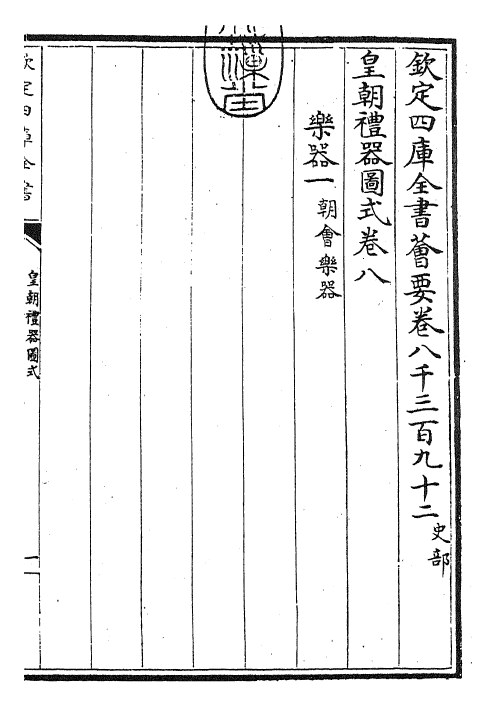 欽定四庫全書薈要卷八千三百九十二 史部
皇朝禮器圖式卷八
樂器一 朝會樂器
欽定四庫全書
皇朝禮器圖式
一